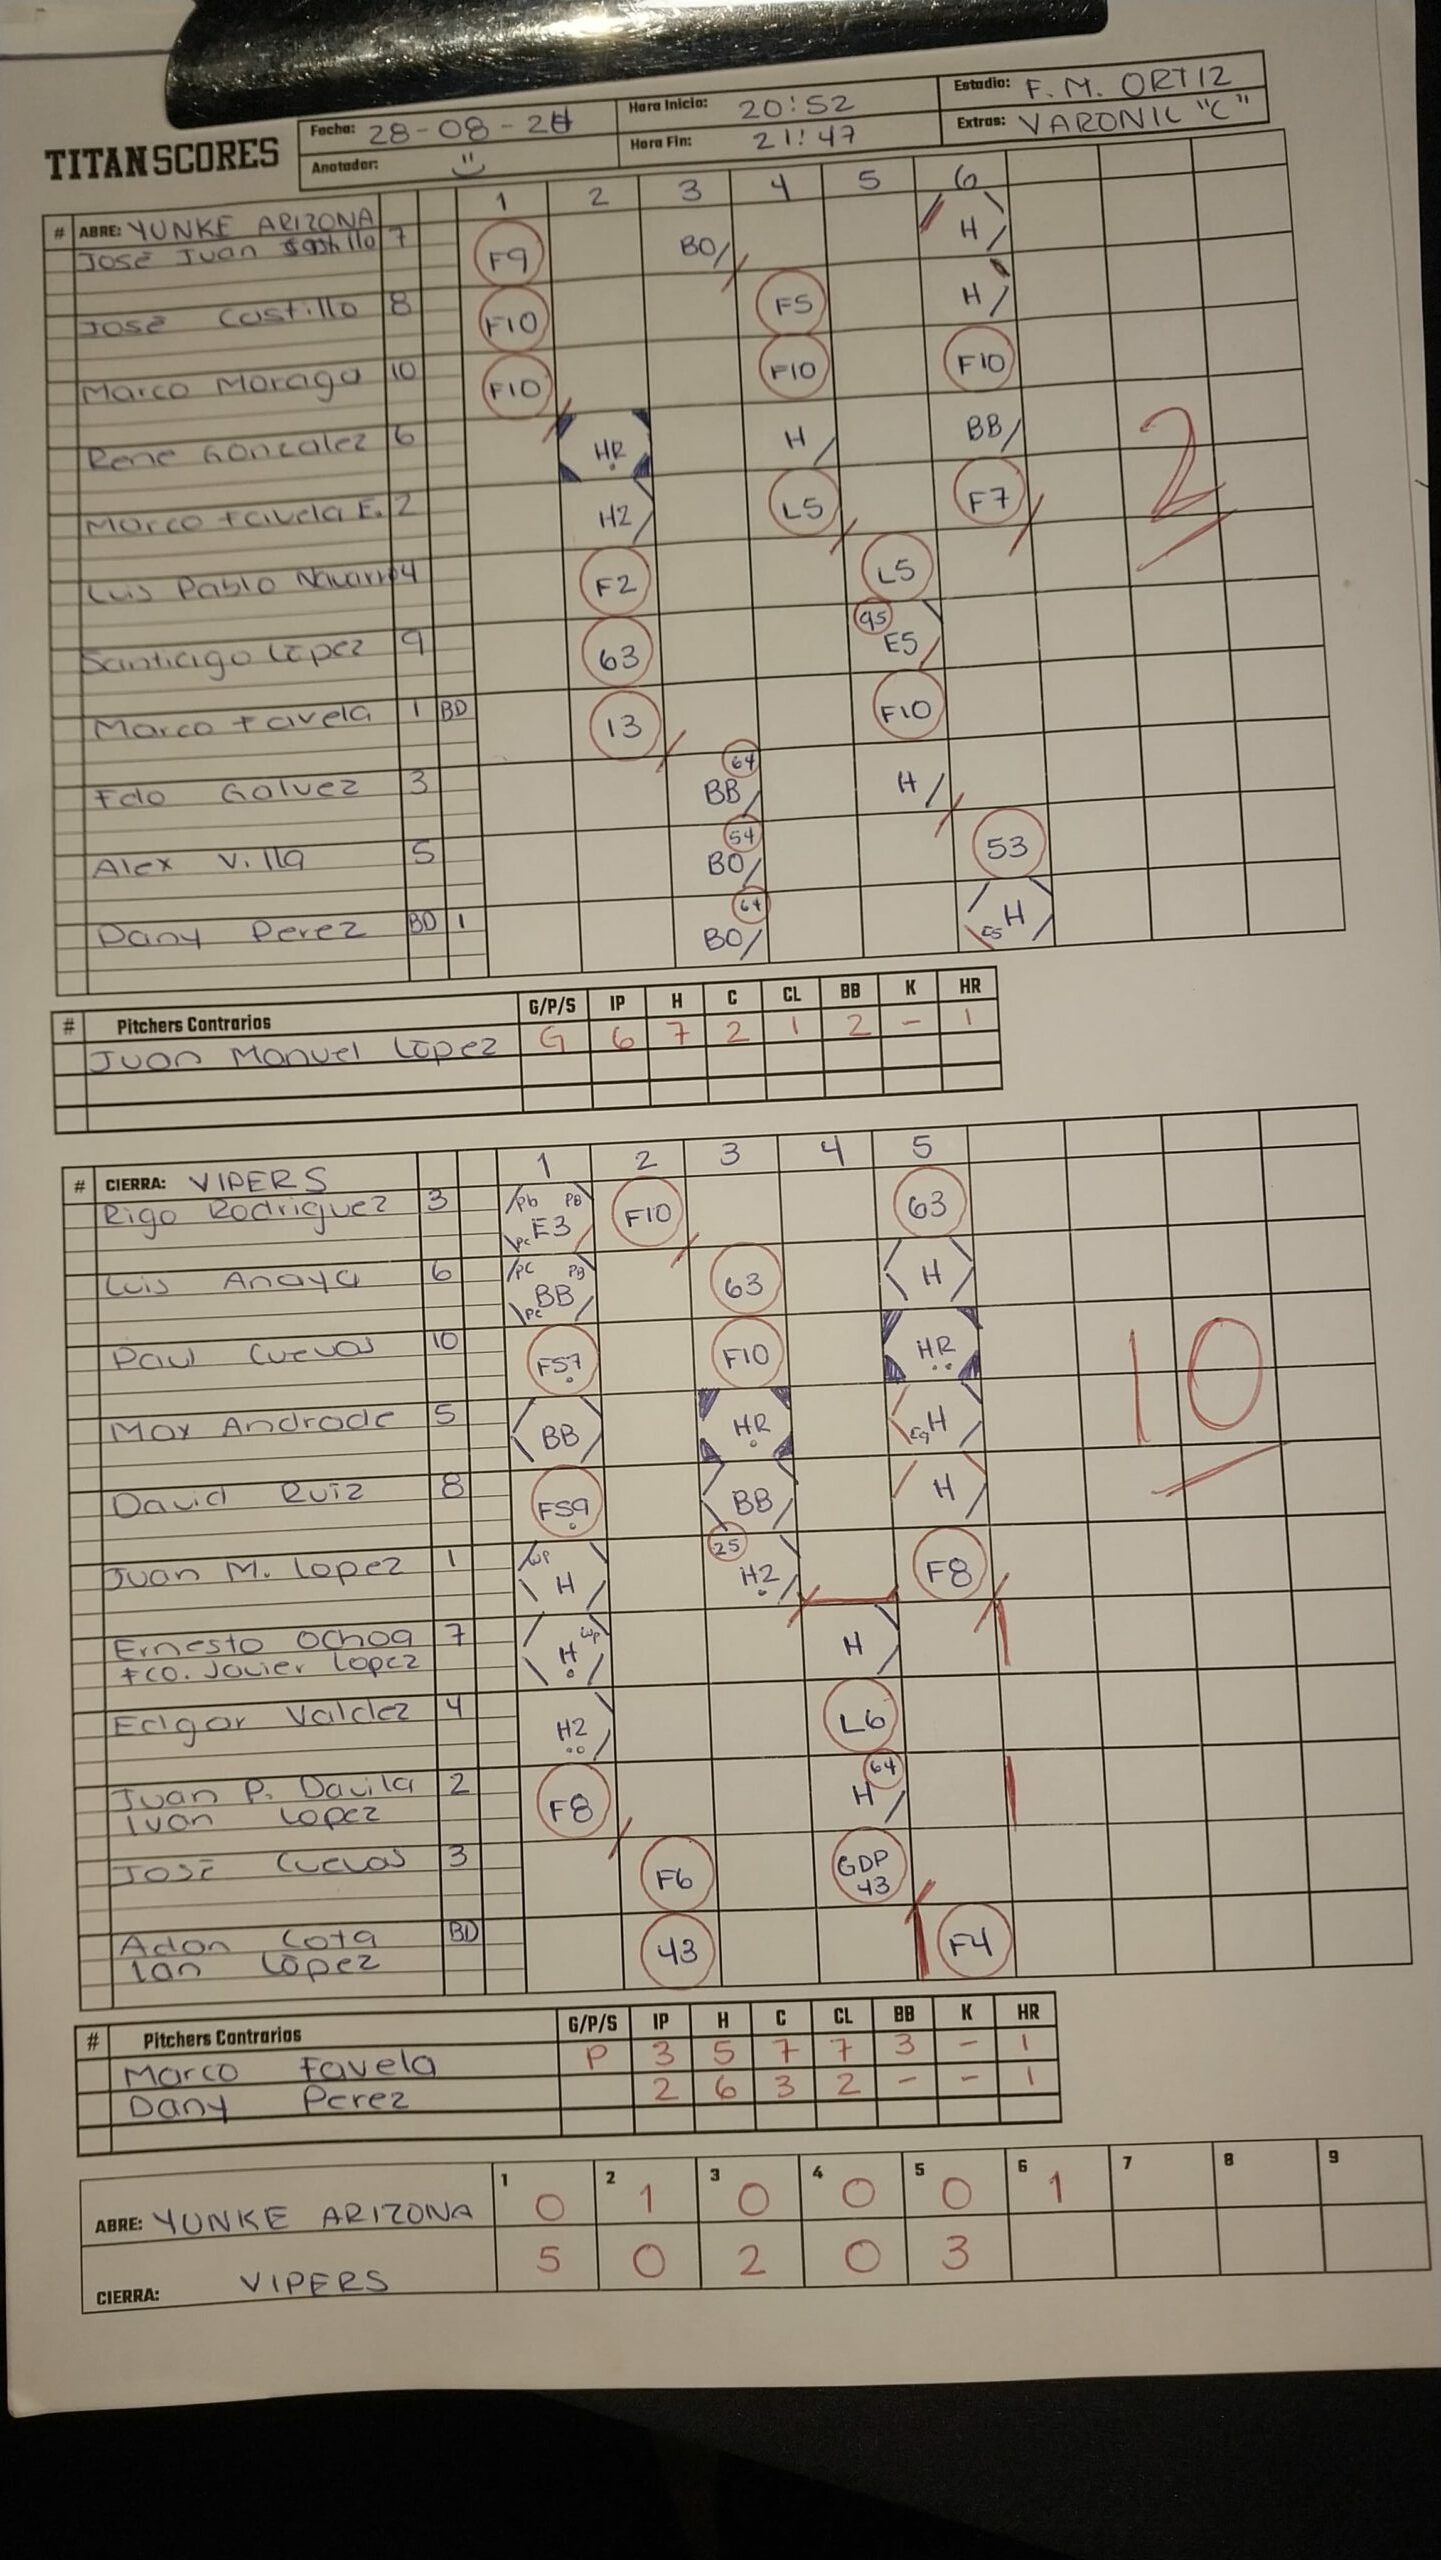 TITAN SCORES
Fecha: 28-08-24 Hora Inicio: 20:52 Estadio: F. M. ORTIZ
Anotador: Hora Fin: 21:47 Extras: VARONIL "C"
# ABRE: YUNKE ARIZONA 1 2 3 4 5 6
José Juan 7 F9 BO H
José Castillo 8 F10 F5 H
Marco Moraga 10 F10 F10 F10
Rene Gonzalez 6 HR H BB
Marco Favela E. 2 H2 L5 F7
2
Luis Pablo Navarro 4 F2 L5
Santiago López 9 63 95 E5
Marco Favela 1 BD 13 F10
Fdo Galvez 3 64 BB H
Alex Villa 5 54 BO 53
Dany Perez BD 1 64 BO E5 H
# Pitchers Contrarios G/P/S IP H C CL BB K HR
Juan Manuel López G 6 7 2 1 2 - 1
# CIERRA: VIPERS 1 2 3 4 5
Rigo Rodriguez 3 Pb PB E3 PC F10 63
Luis Anaya 6 PC PB BB PC 63 H
Paul Cuevas 10 FS7 F10 HR
Max Andrade 5 BB HR E9 H
10
David Ruiz 8 FS9 BB H
Juan M. Lopez 1 WP H 25 H2 F8
Ernesto Ochoa 7 WP H H
Fco. Javier Lopez
Edgar Valdez 4 H2 L6
Juan P. Davila 2 F8 64 H
Ivan Lopez
José Cuevas 3 F6 GDP 43
Adan Cota BD 43 F4
Ian López
# Pitchers Contrarios G/P/S IP H C CL BB K HR
Marco Favela P 3 5 7 7 3 - 1
Dany Perez 2 6 3 2 - - 1
1 2 3 4 5 6 7 8 9
ABRE: YUNKE ARIZONA 0 1 0 0 0 1
CIERRA: VIPERS 5 0 2 0 3